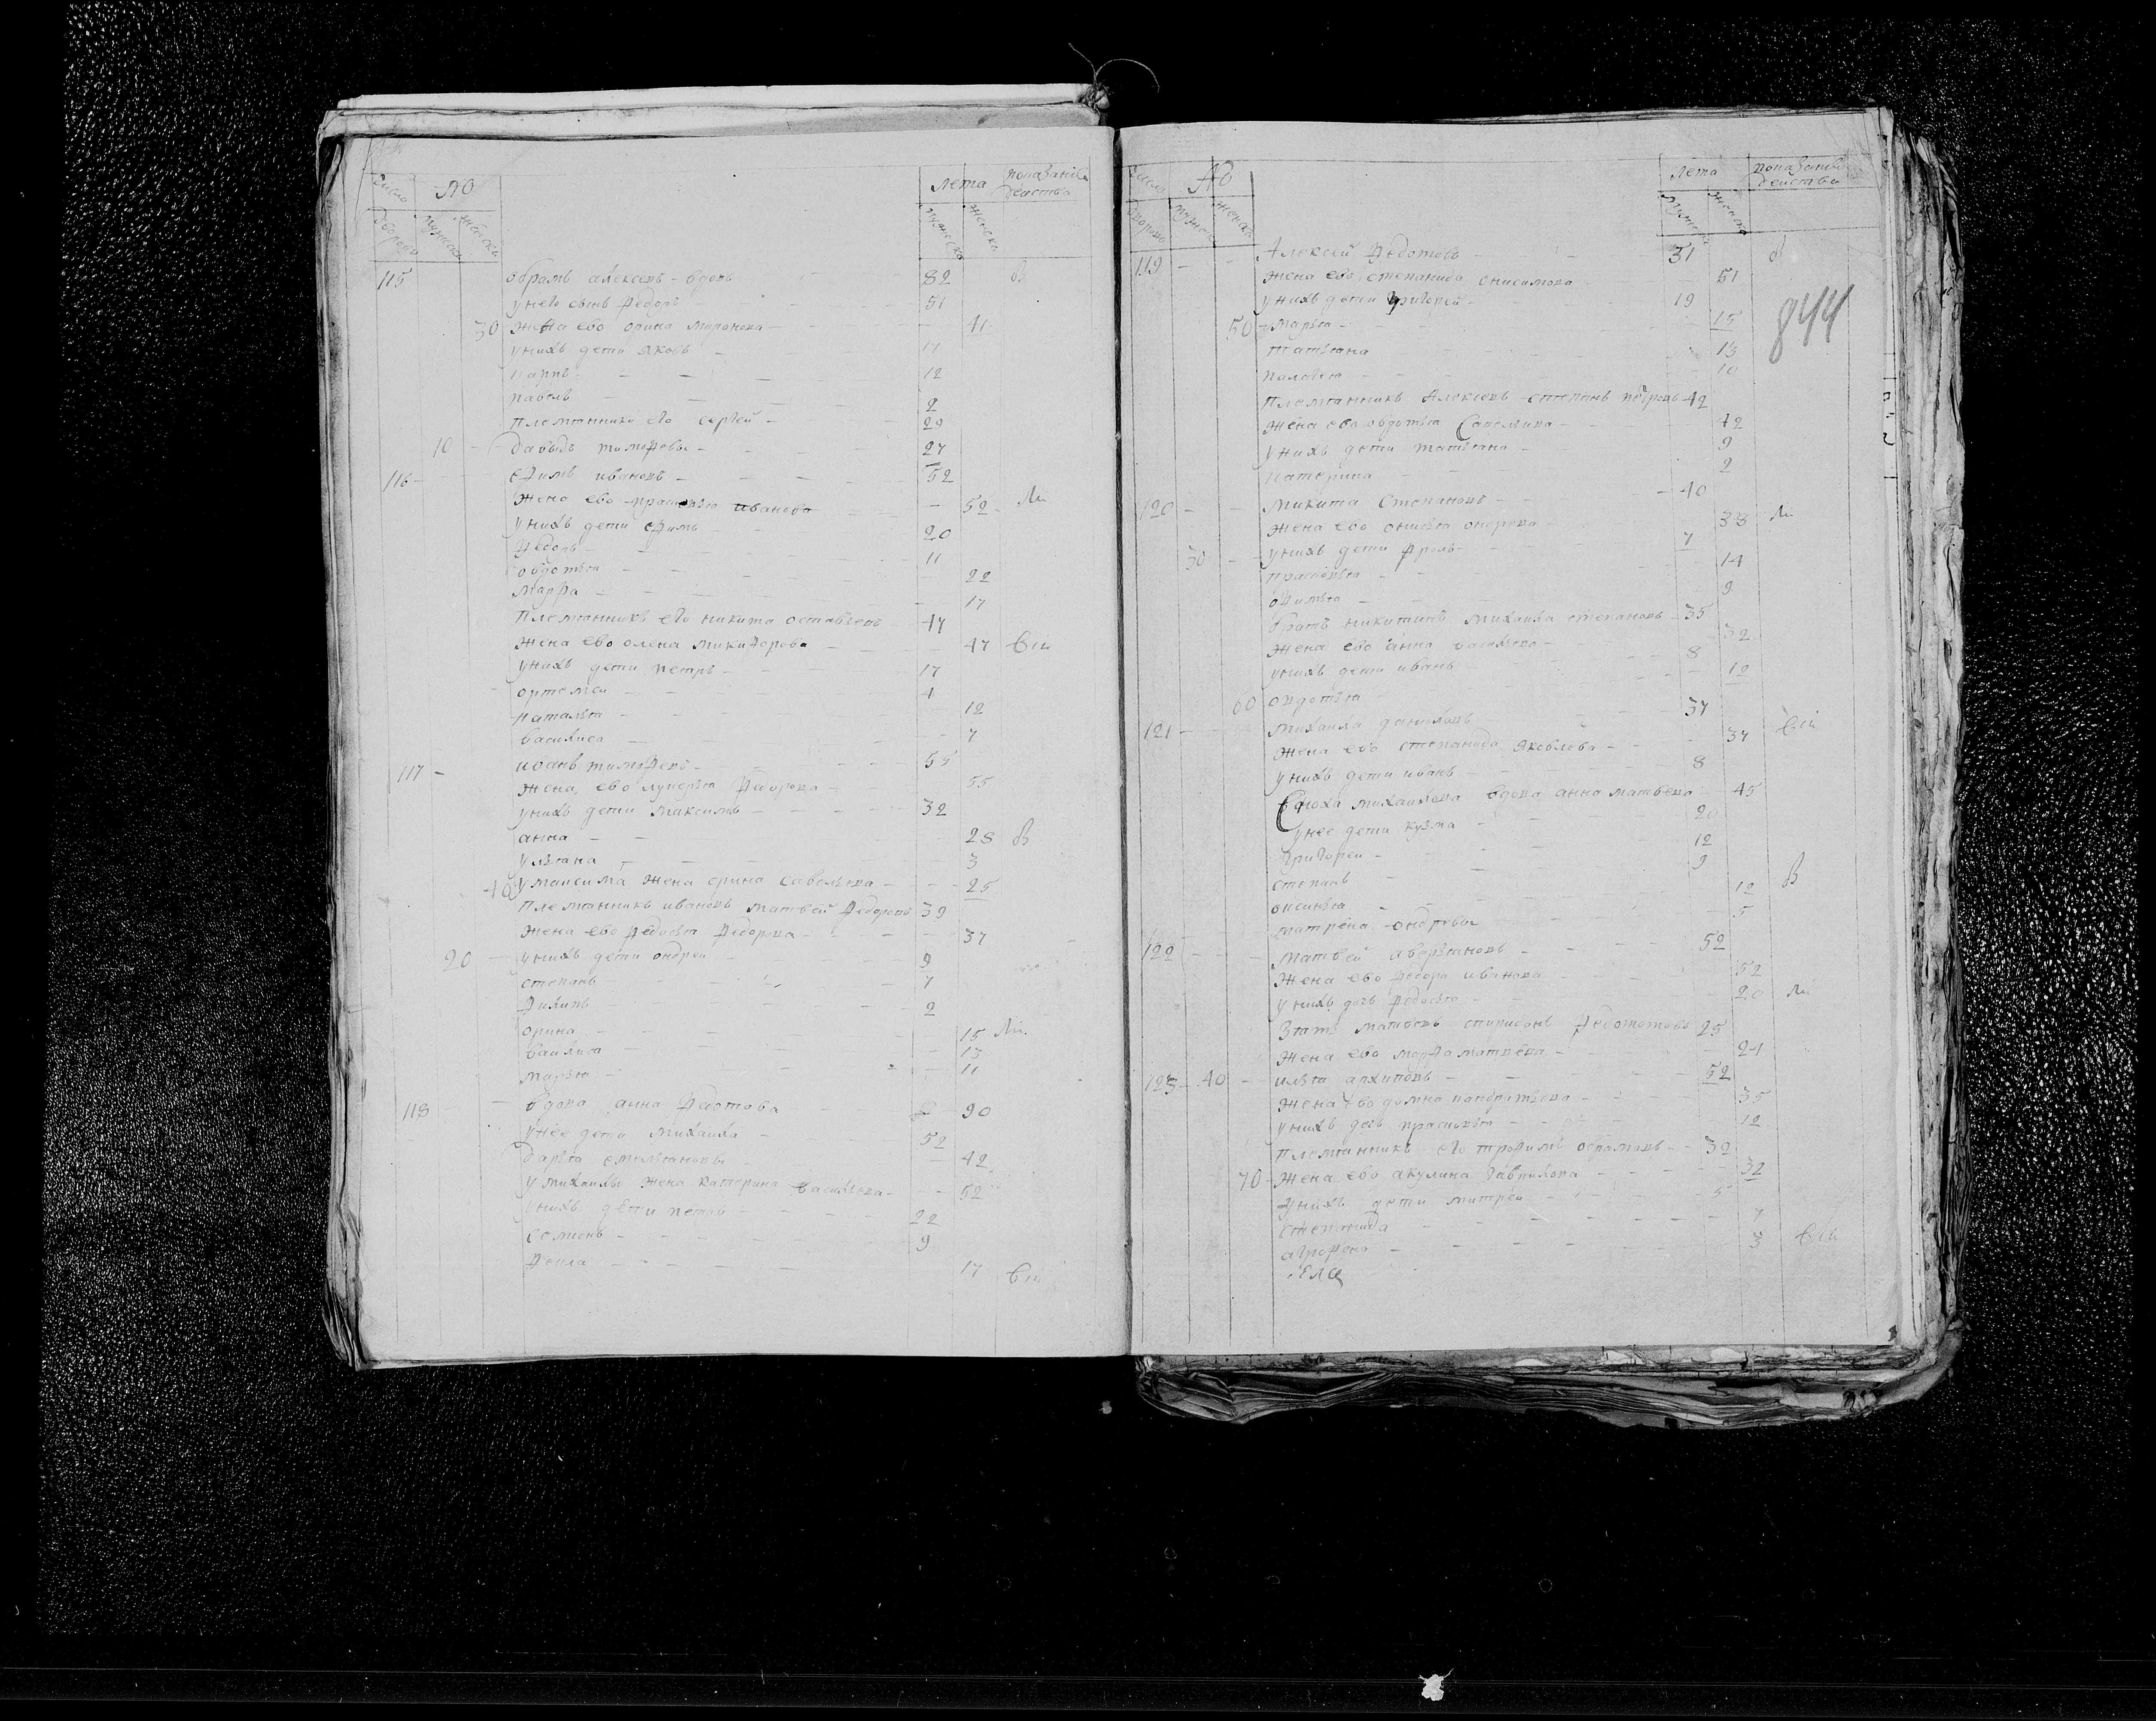 Число АО Лета показание
действа
дворовъ мужеска женска мужеска женска
115 обрамъ алексеевъ вдовъ 82 В
унего сынъ федоръ 51
30 жена ево орина миронова 41
унихъ дети яковъ
карпъ 12
павелъ 2
племянники его сергей 29
10 давыдъ тимофеевы 27
116 ефимъ ивановъ 52
жена ево прасковья иванова 52 Ли
унихъ дети ефимъ 20
федоръ 11
овдотья 22
марфа 17
племянникъ его никита остафьевъ 47
жена ево олена микифорова 47 Сіи
унихъ дети петръ 17
ортемей 4
наталья 12
василиса 7
117 иванъ тимофеевъ 55
жена ево лукерья федорова 55
унихъ дети максимъ 32
анна 28 В
ульяна 3
40 умаксима жена орина савельева 25
племянникъ ивановъ матвей федоровъ 39
жена ево федосья федорова 37
20 унихъ дети ондрей 9
степанъ 7
филипъ 2
орина 15 Ли
василиса 13
марья 11
118 вдова анна федотова 90
унее дети михаила 52
дарья емельяновы 42
умихаилы жена катерина васильева 52
унихъ дети петръ 22
семионъ 9
фекла 17 Сіи
Число АО Лета показание
действа
дворовъ мужеска женска мужеска женска
119 Алексей федотовъ 31 В
жена ево степанида онисимова 51
унихъ дети григорей 19
844
50 марья 15
татьяна 13
палагея 10
племянникъ Алексеевъ степанъ петровъ 42
жена ево овдотья Савельева 42
унихъ дети татьяна 9
катерина 2
120 микита Степановъ 40
жена ево онисья 33 Ли
30 унихъ дети фролъ 7
прасковья 14
офимья 9
братъ никитинъ михаила степановъ 35
жена ево анна васильева 32
унихъ дети иванъ 8
60 овдотья 12
121 михаила даниловъ 37
жена ево степанида яковлева 37 Сіи
унихъ дети иванъ 8
Сноха михаилова вдова анна матвеева 45
унее дети кузма 20
григорей 12
степанъ 9
оксинья 12 В
матрена ондреевы 5
122 матвей аверьяновъ 52
жена ево федора иванова 52
унихъ дочь федосья 20 Ли
Зять матвеевъ спиридонъ федотовъ 25
жена ево марфа матвеева 24
123 40 илья архиповъ 52
жена ево домна кондратьева 35
унихъ дочь прасковья 12
племянникъ его трофимъ обрамовъ 32
70 жена ево акулина гаврилова 32
унихъ дети митрей 5
степанида 7
агрофена 3 Сіи